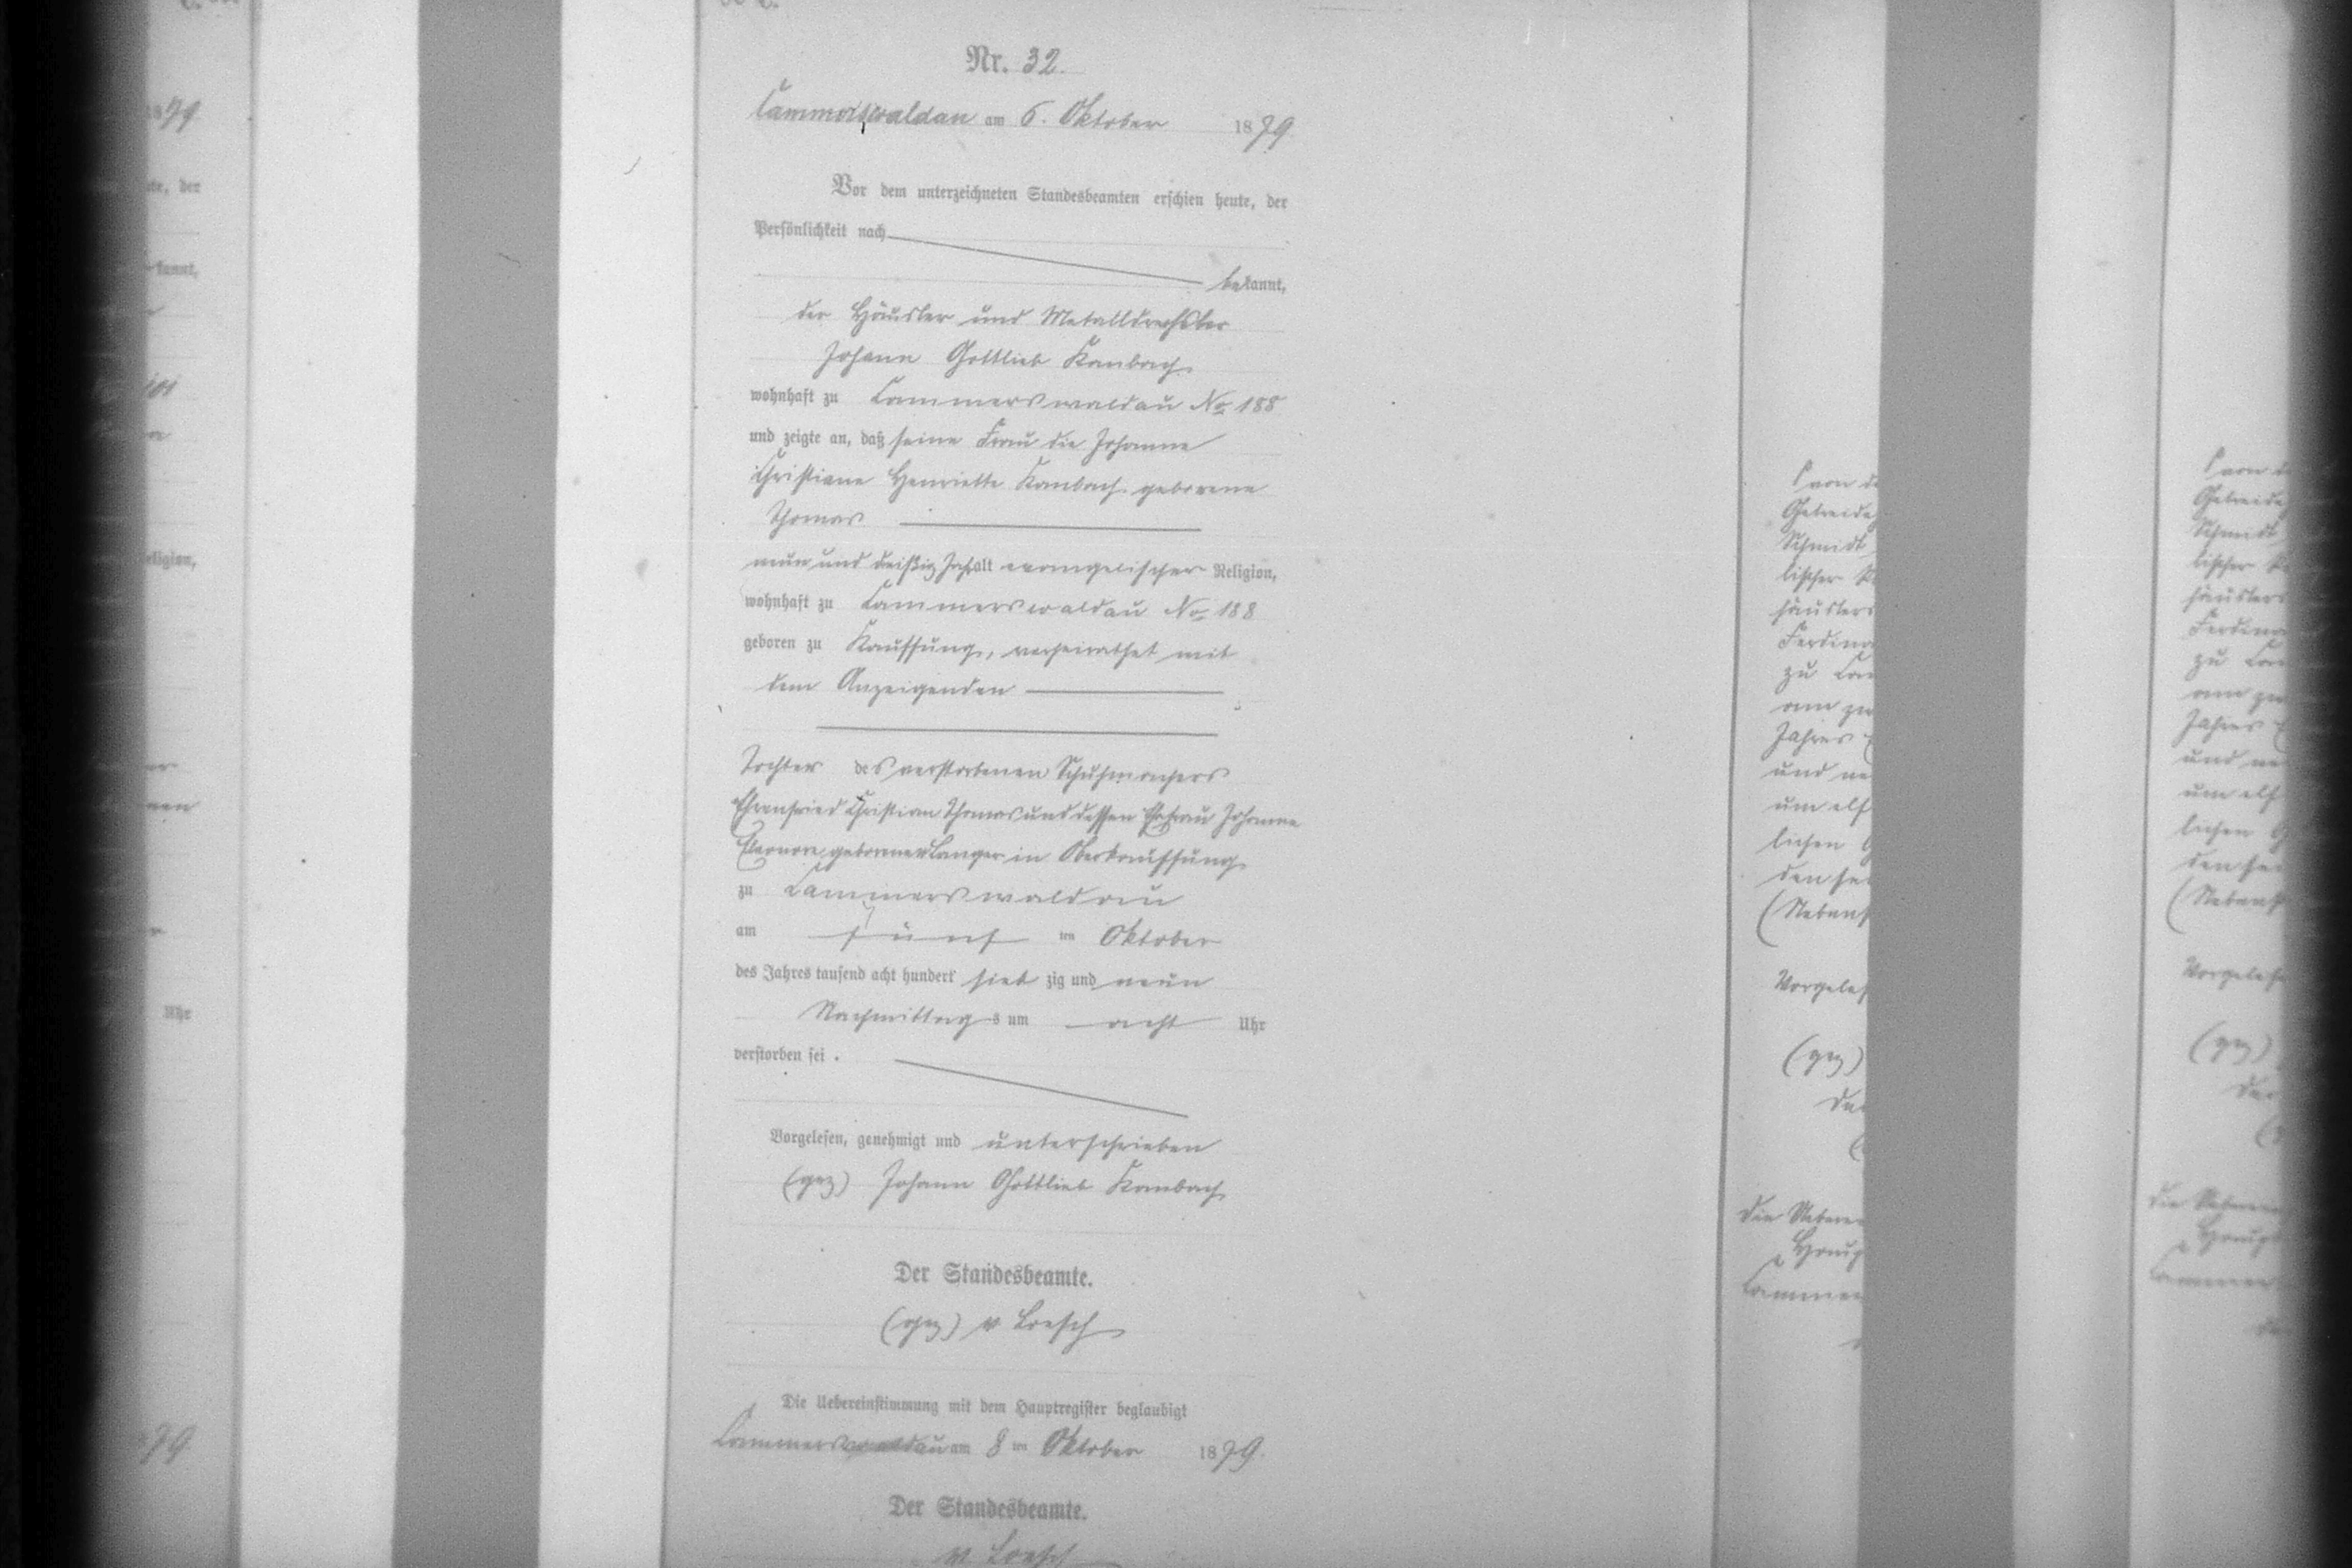 Nr. 32.
Cammerswaldau am 6. Oktober 1879.
Vor dem unterzeichneten Standesbeamten erschien heute, der
Persönlichkeit nach
bekannt,
der Häusler und Metalldrechsler
Johann Gottlieb Kambach
wohnhaft zu Cammerswaldau No 188
und zeigte an, daß seine Frau die Johanne
Christiane Henriette Kambach geborene
Thomas
neun und dreißig Jahr alt evangelischer Religion,
wohnhaft zu Cammerswaldau No 188
geboren zu Kauffung, verheirathet mit
dem Anzeigenden
Tochter des verstorbenen Schuhmachers
Ehrenfried Christian Thomas und dessen Ehefrau Johanne
Eleonore geborenen Langer in Oberkauffung
zu Cammerswaldau
am fünf ten Oktober
des Jahres tausend acht hundert sieb zig und neun
Nachmittags um acht Uhr
verstorben sei.
Vorgelesen, genehmigt und unterschrieben
(gez) Johann Gottlieb Kambach
Der Standesbeamte.
(gez) v Loesch
Die Uebereinstimmung mit dem Hauptregister beglaubigt
Cammerswaldau am 8 ten Oktober 1879.
Der Standesbeamte.
v Loesch